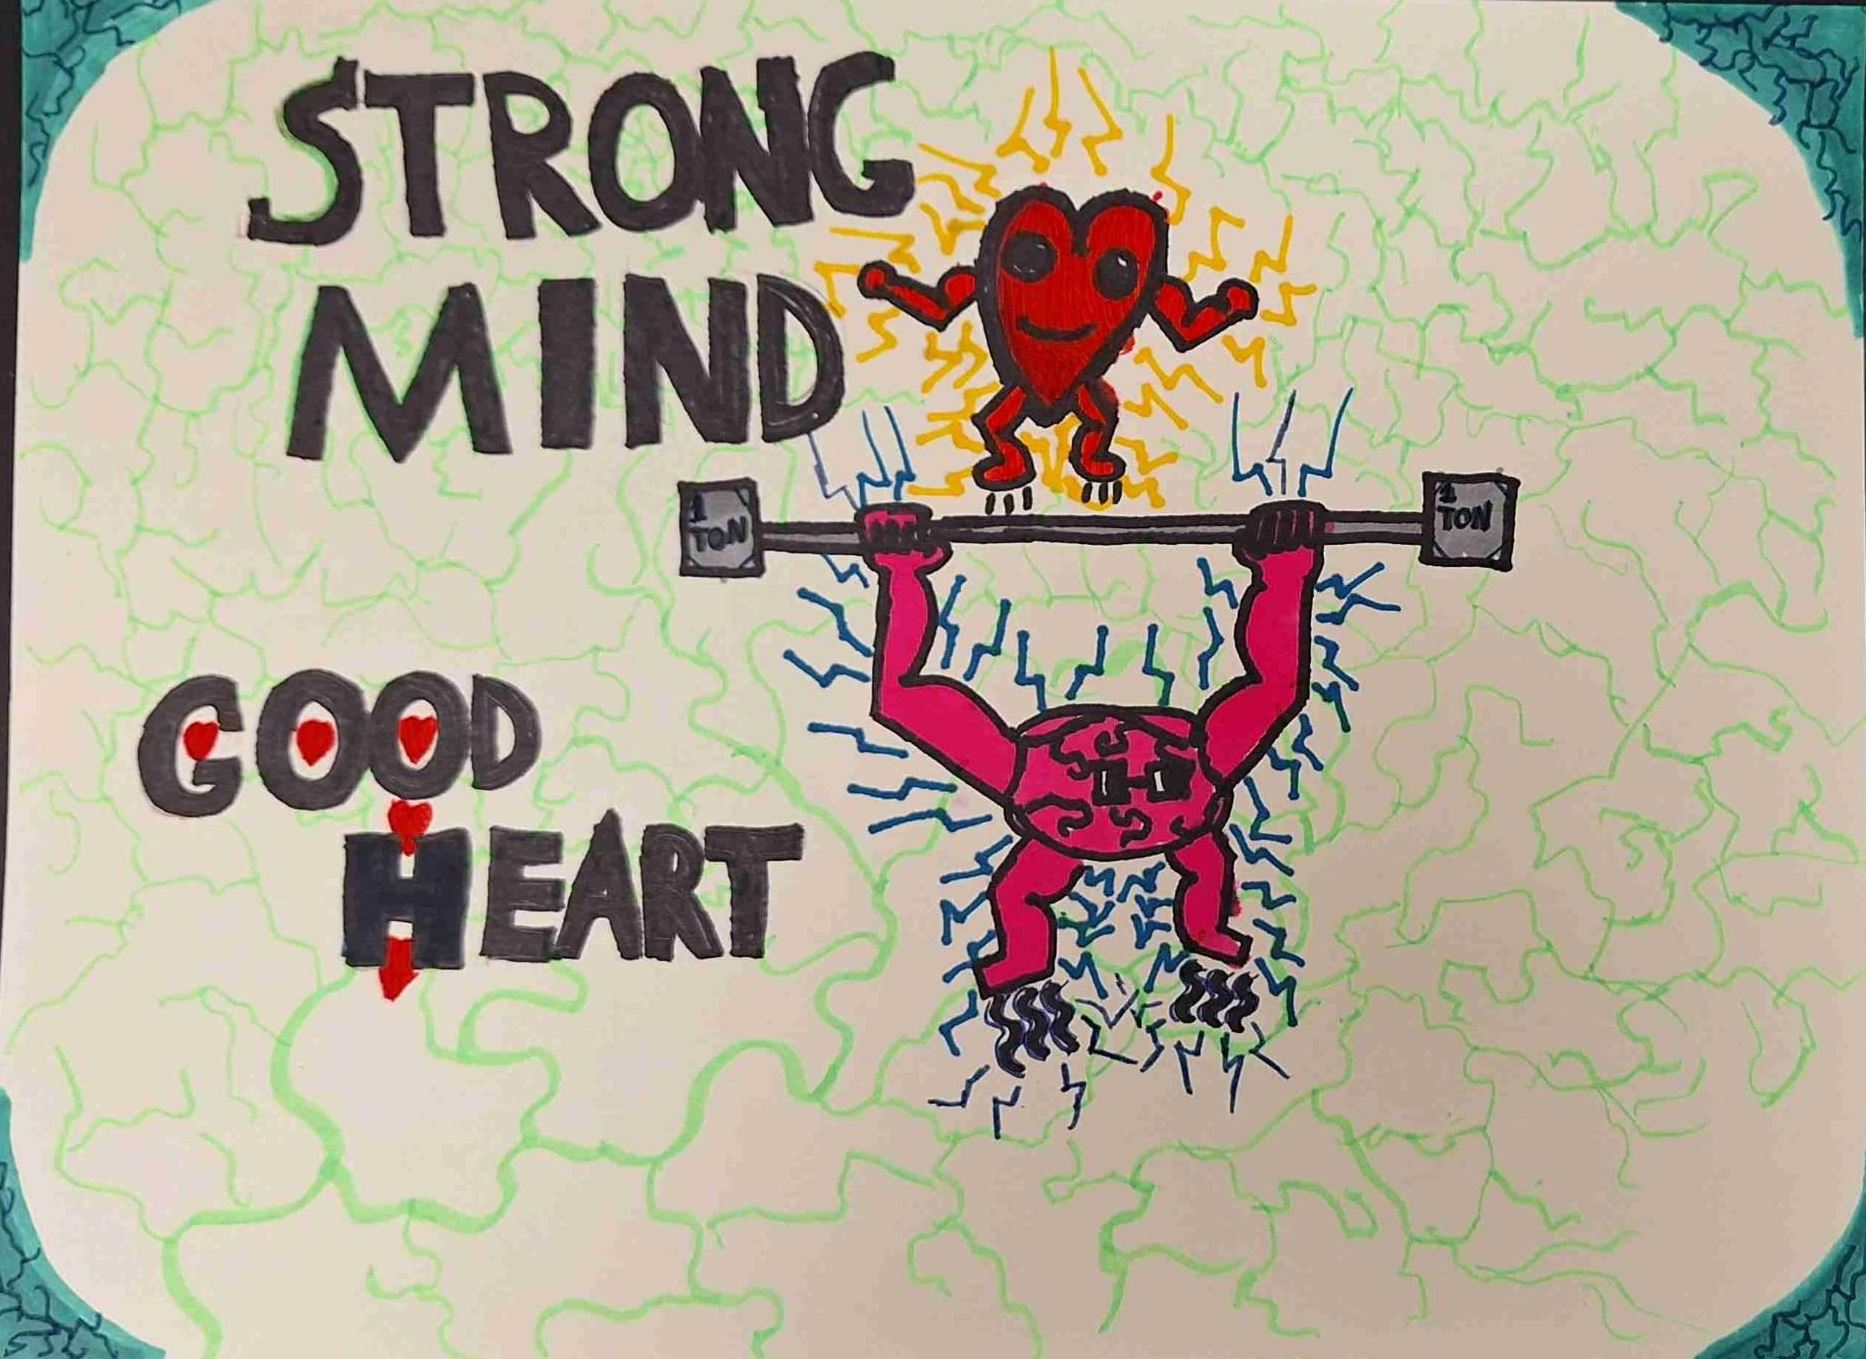 STRONG
MIND
1
TON
1
TON
GOOD
HEART